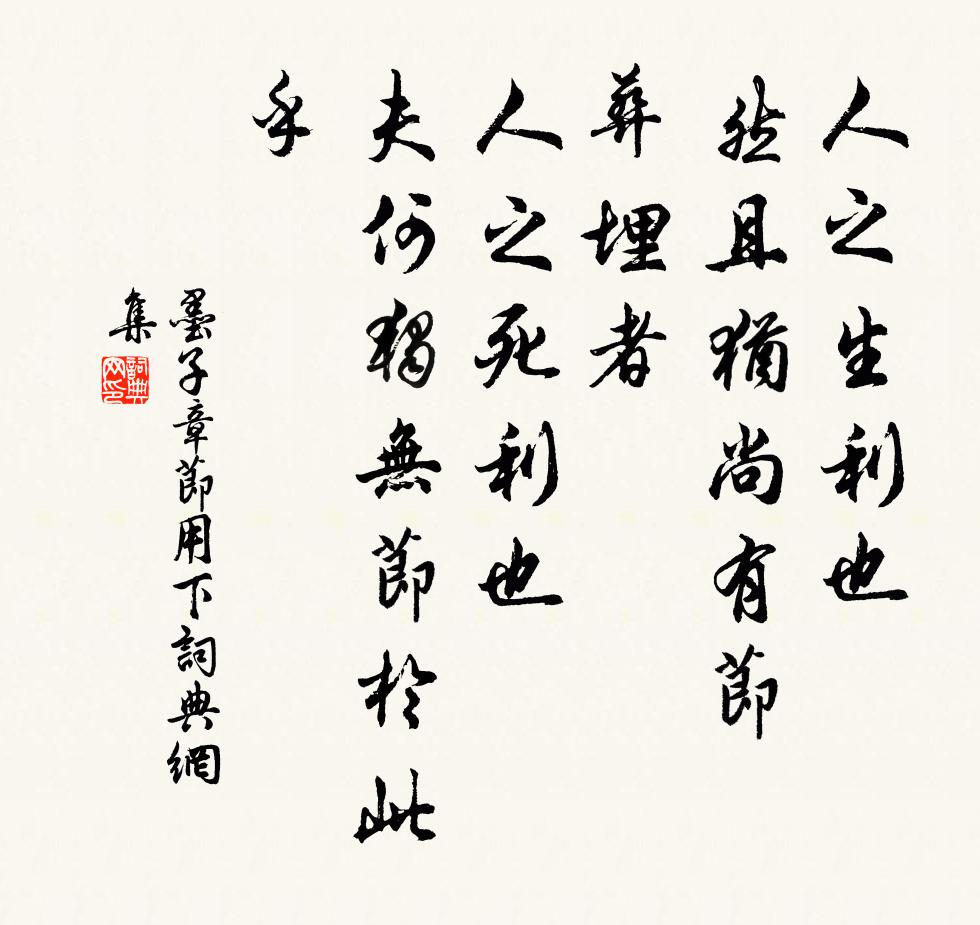 人之生利也
然且猶尚有節
葬埋者
人之死利也
夫何獨無節於此
乎
墨子章節用下詞典網
集
詞典
网印